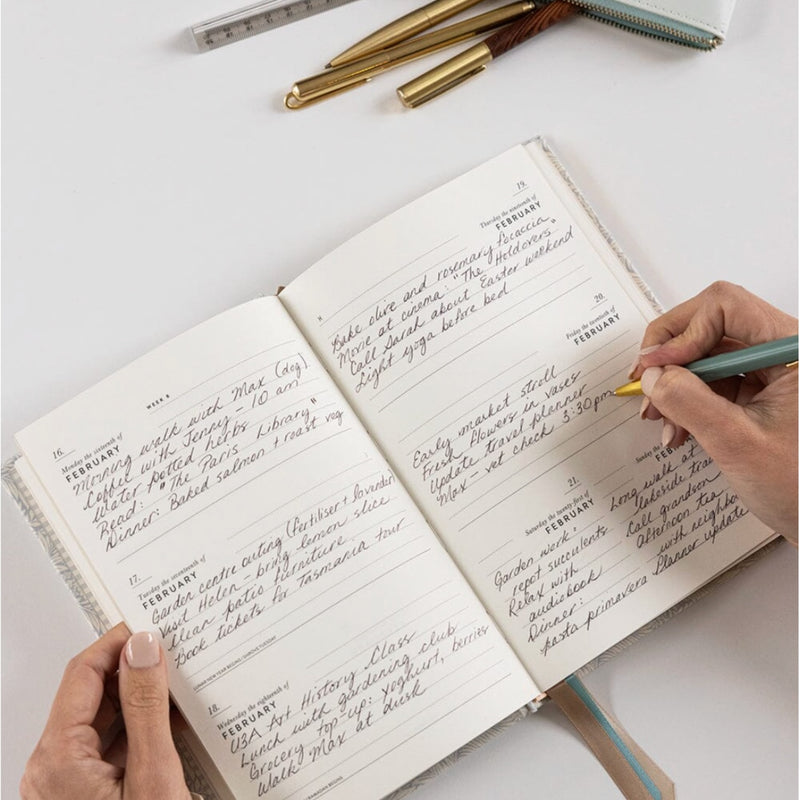 WEEK 8
16.
Monday the sixteenth of
FEBRUARY
Morning walk with Max (dog)
Coffee with Jenny – 10 am
Water potted herbs
Read: "The Paris Library"
Dinner: Baked salmon + roast veg
17.
Tuesday the seventeenth of
FEBRUARY
Garden centre outing (fertiliser + lavender)
Visit Helen – bring lemon slice
Clean patio furniture
Book tickets for Tasmania tour
LUNAR NEW YEAR BEGINS / SHROVE TUESDAY
18.
Wednesday the eighteenth of
FEBRUARY
U3A Art History Class
Lunch with gardening club
Grocery top-up: yoghurt, berries
Walk Max at dusk
RAMADAN BEGINS
19.
Thursday the nineteenth of
FEBRUARY
Bake olive and rosemary focaccia
Movie at cinema: "The Holdovers"
Call Sarah about Easter weekend
Light yoga before bed
20.
Friday the twentieth of
FEBRUARY
Early market stroll
Fresh flowers in vases
Update travel planner
Max – vet check 3:30pm
21.
Saturday the twenty first of
FEBRUARY
Garden work:
repot succulents
Relax with
audiobook
Dinner:
pasta primavera
Sunday the
Long walk at
lakeside
Call grandson
Afternoon tea
with
Planner update